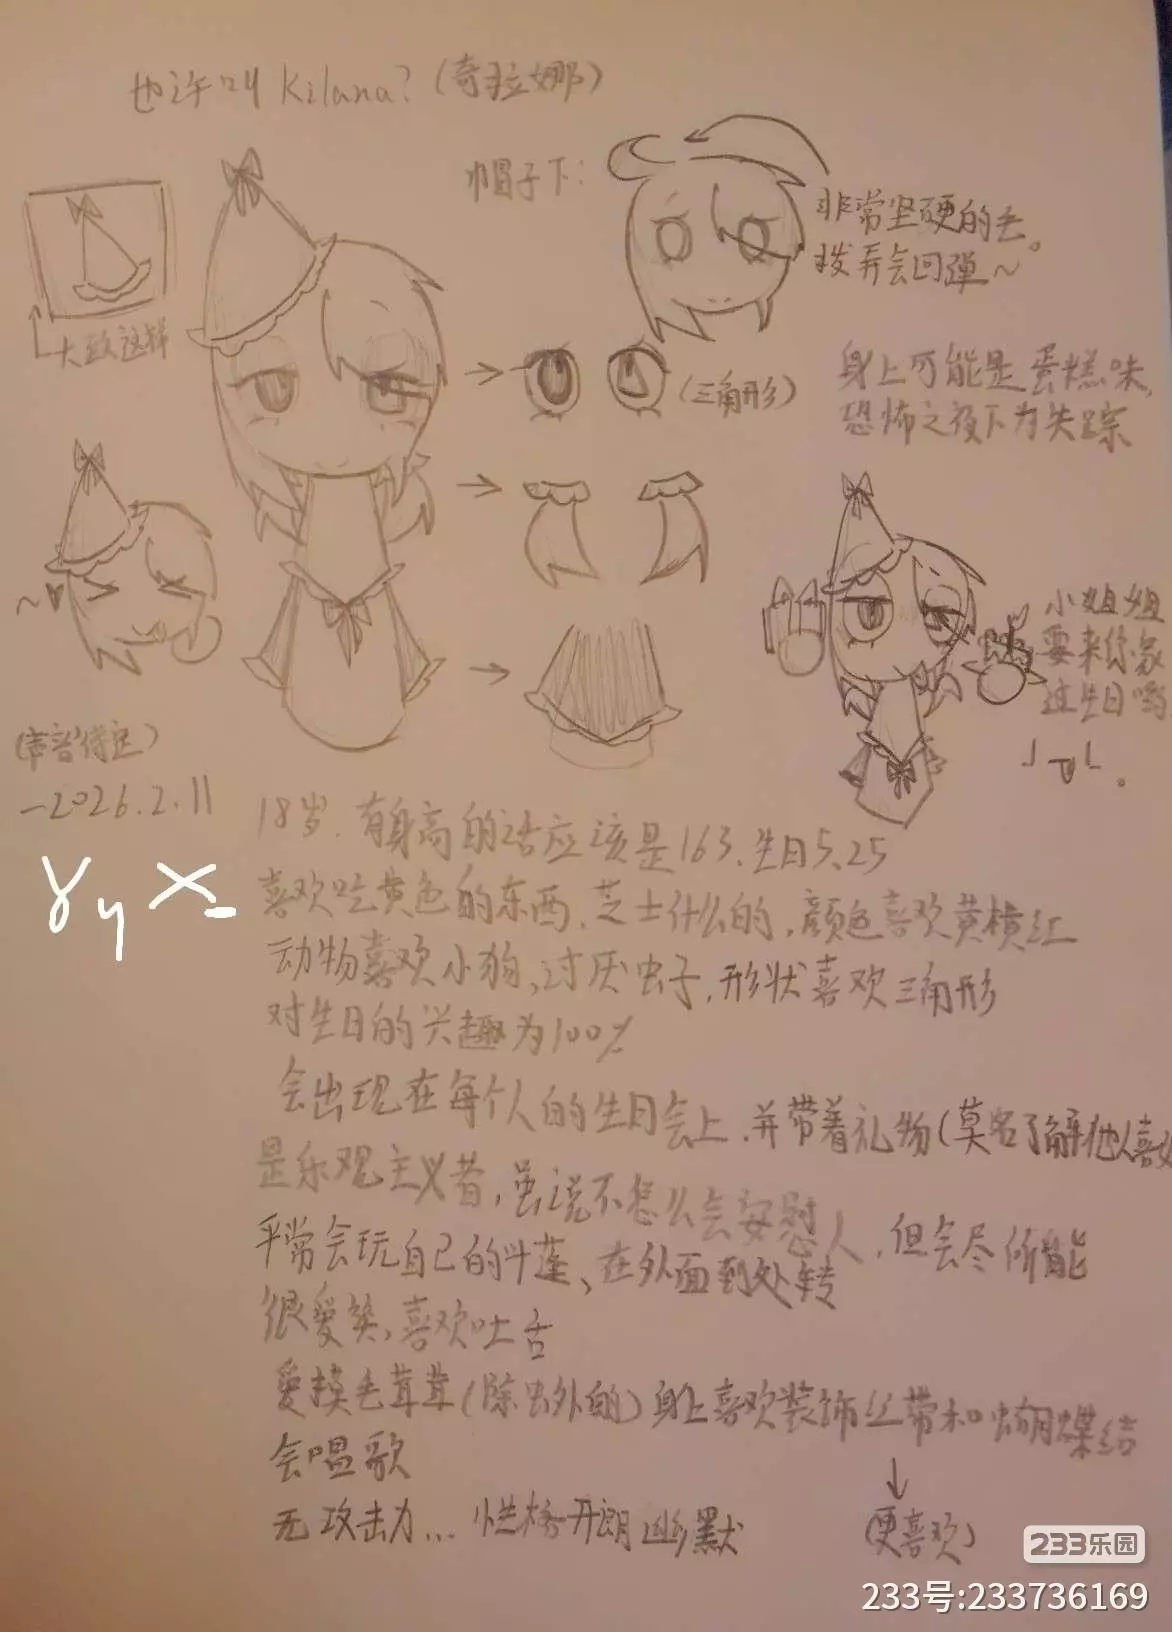 也许叫 Kilana?(奇拉娜)
帽子下:
非常坚硬的毛。
拨弄会回弹~
大致这样
(三角形)
身上可能是蛋糕味,
恐怖之夜下为失踪
小姐姐
要来你家
过生日哟
(声音待定)
-2026.2.11
yyx
18岁.有身高的话应该是163.生日5.25
喜欢吃黄色的东西,芝士什么的,颜色喜欢黄橙红
动物喜欢小狗,讨厌虫子,形状喜欢三角形
对生日的兴趣为100%
会出现在每个人的生日会上.并带着礼物(莫名了解他人喜好
是乐观主义者,虽说不怎么会安慰人,但会尽所能
平常会玩自己的斗蓬、在外面到处转
很爱笑,喜欢吐舌
爱摸毛茸茸(除虫外的)身上喜欢装饰丝带和蝴蝶结
(更喜欢)
会唱歌
无攻击力... 性格开朗幽默
233乐园
233号:233736169